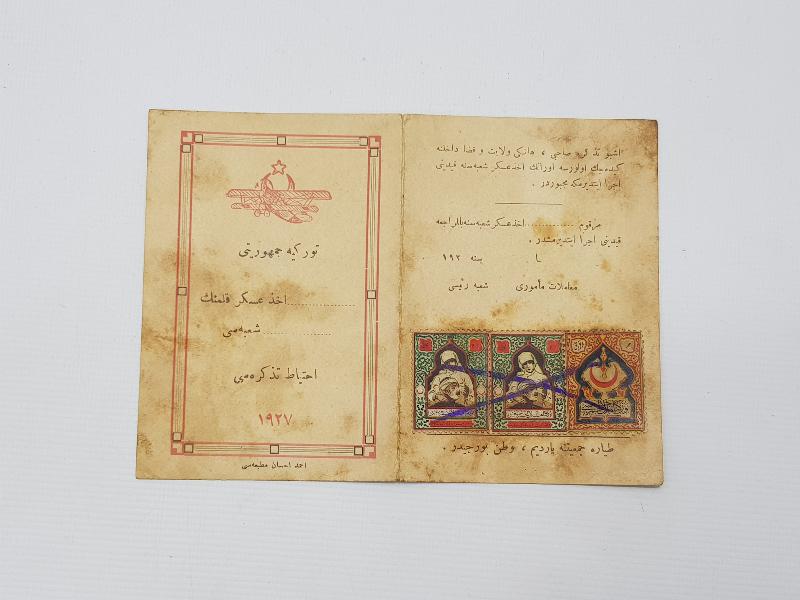 توركيه جمهوريتى
.................. اخذ عسكر قلمنك
.................. شعبه‌سى
احتياط تذكره‌سى
١٩٢٧
احمد احسان مطبعه‌سى
اشبو تذكره صاحبى ، هانكى ولايت و قضا داخلنه
كيده‌جك اولورسه اورانك اخذ عسكر شعبه‌سنه قيدينى
اجرا ايتديرمكه مجبوردر .
مرقوم .............. اخذ عسكر شعبه‌سنه بالمراجعه
قيدينى اجرا ايتديرمشدر .
سنه ١٩٢
معاملات مأمورى شعبه رئيسى
طياره جمعيتنه يارديم ، وطن بورجيدر .